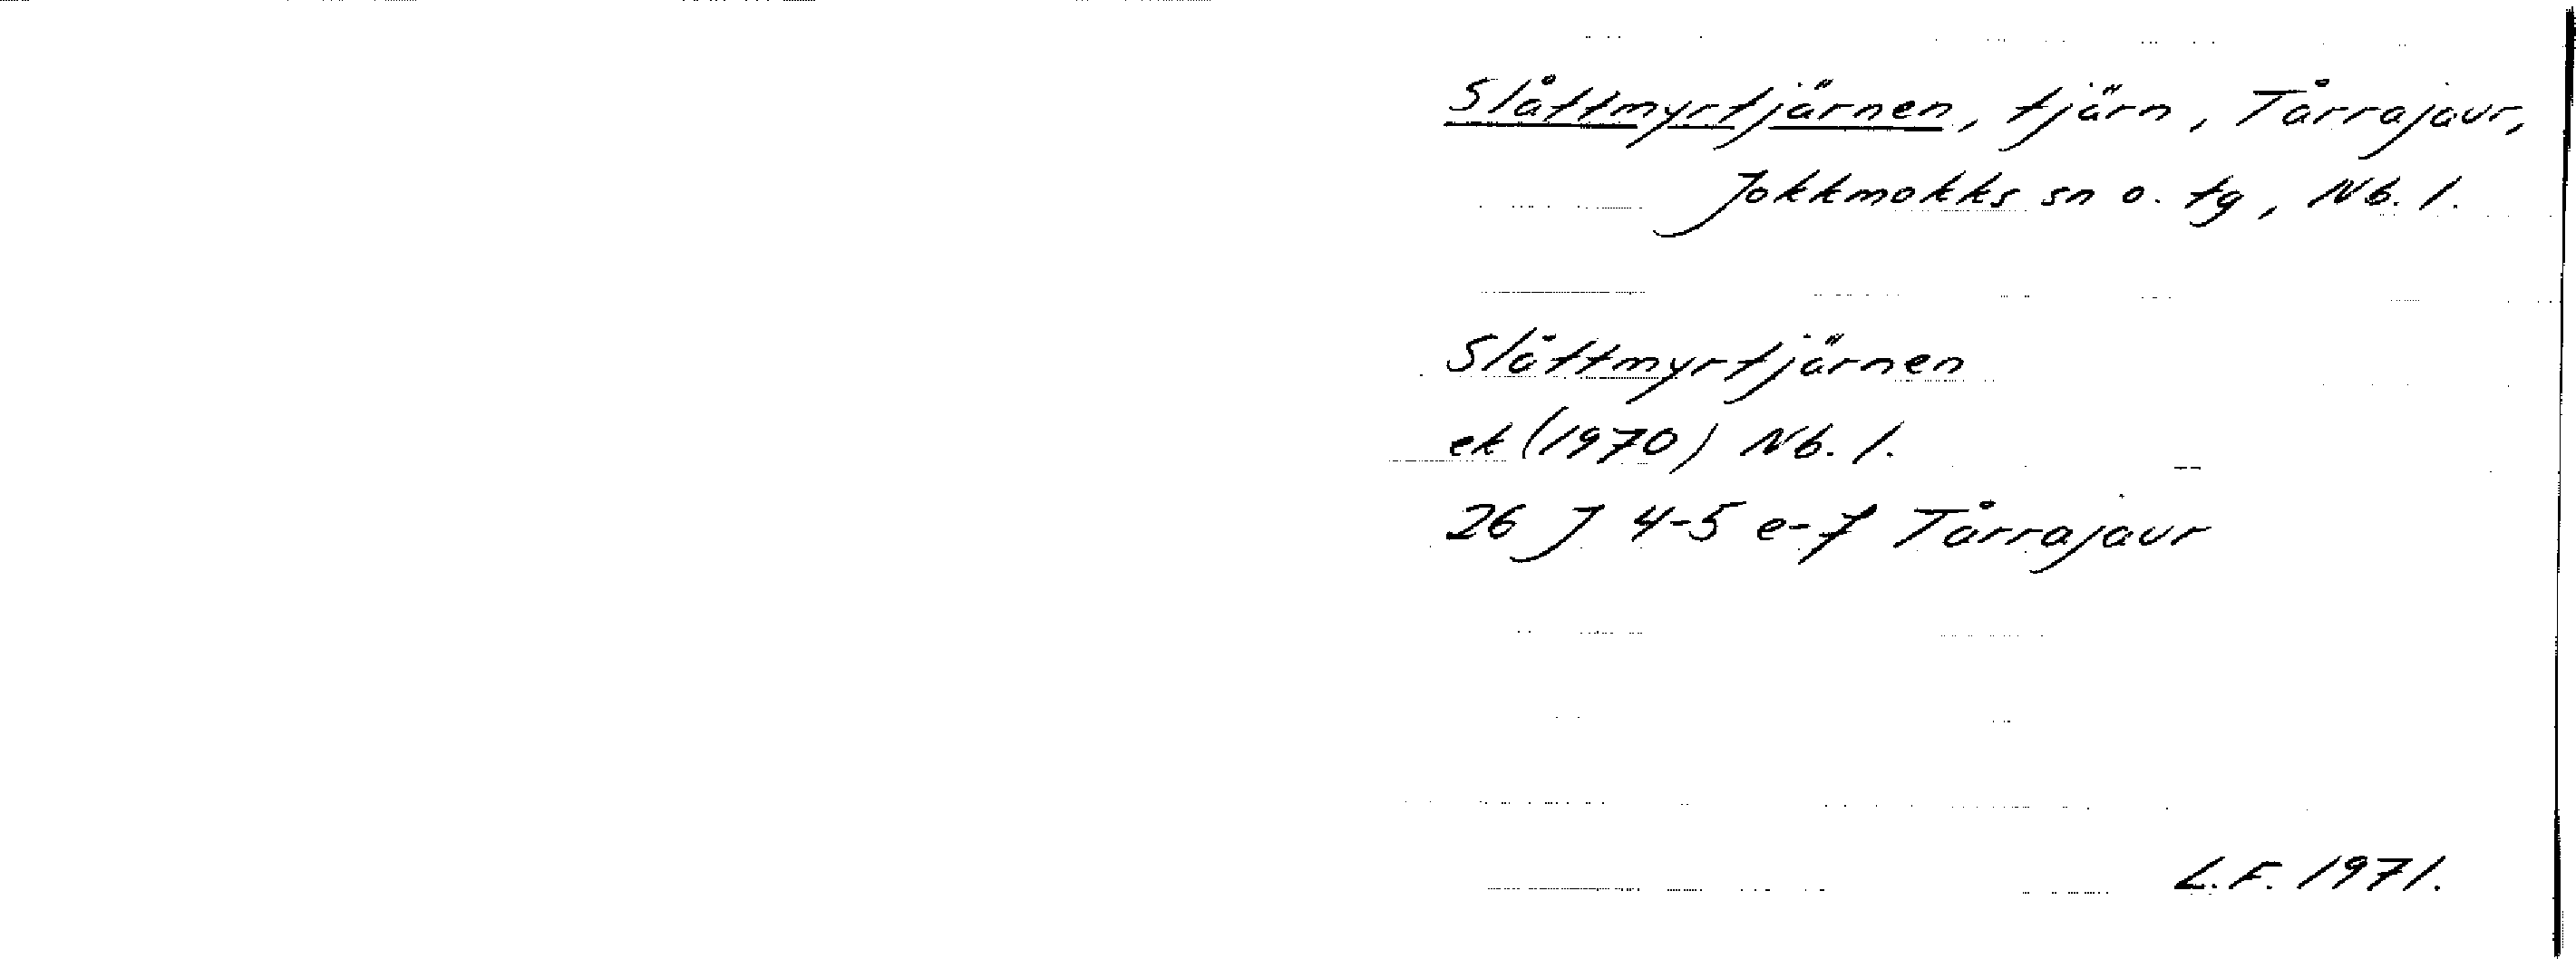 Slåttmyrtjärnen, tjärn, Tårrajaur,
Jokkmokks sn o. tg, Nb. l.
Slåttmyrtjärnen
ek (1970) Nb. l.
26 J 4-5 e-f Tårrajaur
L.F. 1971.